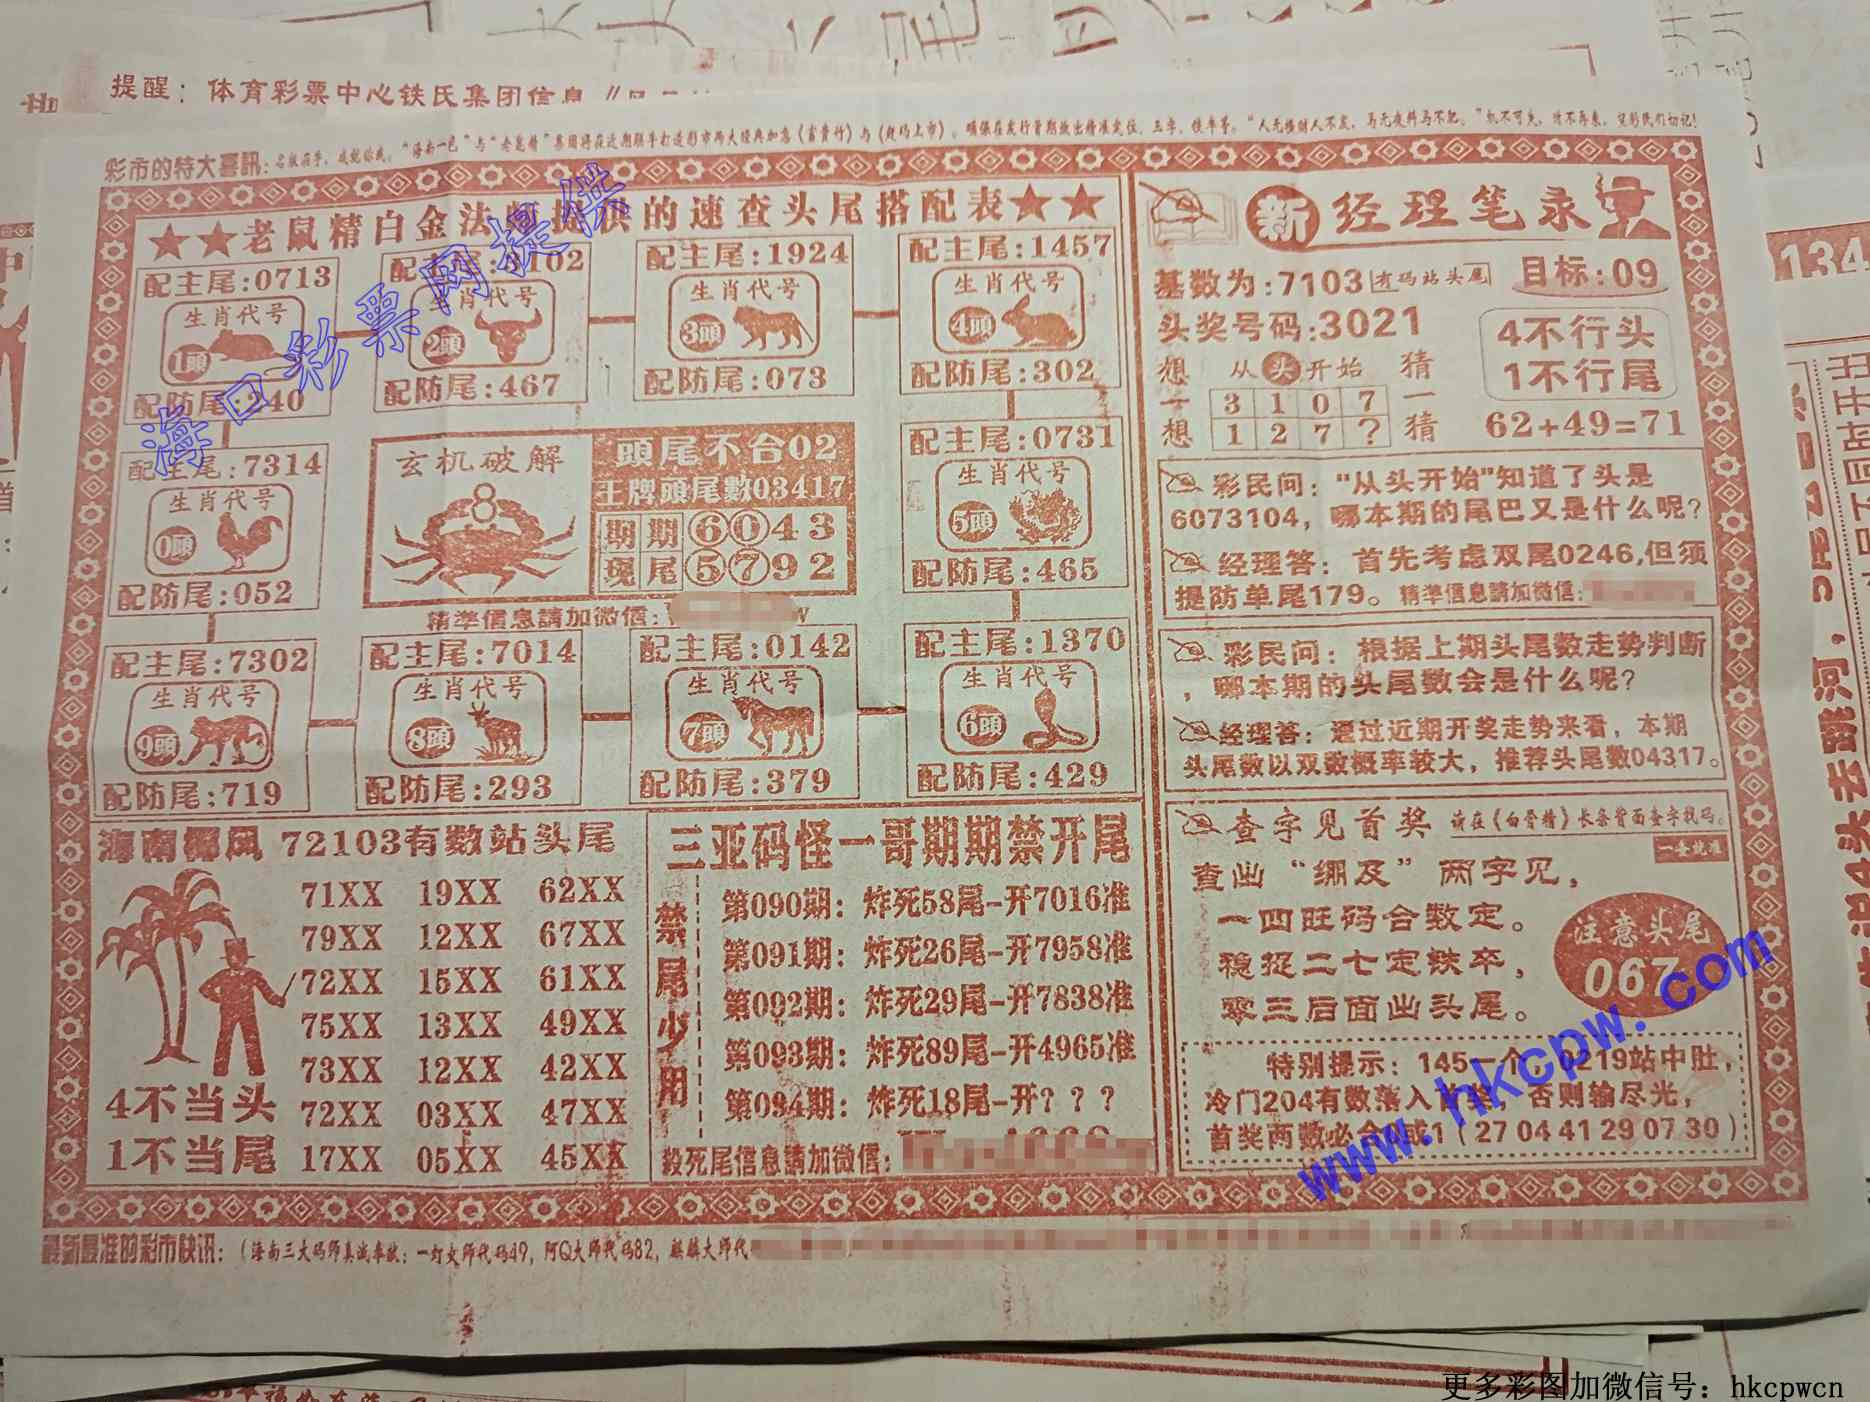 提醒：体育彩票中心铁氏集团信息
彩市的特大喜訊：
★★老鼠精白金法师提供的速查头尾搭配表★★
配主尾:0713
生肖代号
1頭
配防尾:240
配主尾:3102
生肖代号
2頭
配防尾:467
配主尾:1924
生肖代号
3頭
配防尾:073
配主尾:1457
生肖代号
4頭
配防尾:302
配主尾:7314
生肖代号
0頭
配防尾:052
玄机破解
8
頭尾不合02
王牌頭尾數03417
期期6043
现尾5792
精準信息請加微信:
配主尾:0731
生肖代号
5頭
配防尾:465
配主尾:7302
生肖代号
9頭
配防尾:719
配主尾:7014
生肖代号
8頭
配防尾:293
配主尾:0142
生肖代号
7頭
配防尾:379
配主尾:1370
生肖代号
6頭
配防尾:429
海南椰风 72103有数站头尾
71XX 19XX 62XX
79XX 12XX 67XX
72XX 15XX 61XX
75XX 13XX 49XX
73XX 12XX 42XX
72XX 03XX 47XX
17XX 05XX 45XX
4不当头
1不当尾
三亚码怪一哥期期禁开尾
禁尾少用
第090期：炸死58尾-开7016准
第091期：炸死26尾-开7958准
第092期：炸死29尾-开7838准
第093期：炸死89尾-开4965准
第094期：炸死18尾-开？？？
殺死尾信息請加微信:
新 经理笔录
基数为:7103 有码站头尾 目标:09
头奖号码:3021
4不行头
1不行尾
想一想
从头开始
3 1 0 7
1 2 7 ?
猜一猜
62+49=71
彩民问："从头开始"知道了头是
6073104，哪本期的尾巴又是什么呢?
经理答：首先考虑双尾0246,但须
提防单尾179。精準信息請加微信:
彩民问：根据上期头尾数走势判断
，哪本期的头尾数会是什么呢?
经理答：通过近期开奖走势来看，本期
头尾数以双数概率较大，推荐头尾数04317。
查字见首奖 请在《白骨精》长条背面查字找码。
一查就准
查出“绷及”两字见，
一四旺码合数定。
稳捉二七定铁卒，
零三后面出头尾。
注意头尾
067
特别提示：145一个，0219站中肚，
冷门204有数落入首奖，否则输尽光，
首奖两数必合 或1（27 04 41 29 07 30）
最新最准的彩市快讯：（海南三大码师真诚奉献：一灯大师代码49，阿Q大师代码82，麒麟大师代
海口彩票网提供
www.hkcpw.com
更多彩图加微信号：hkcpwcn